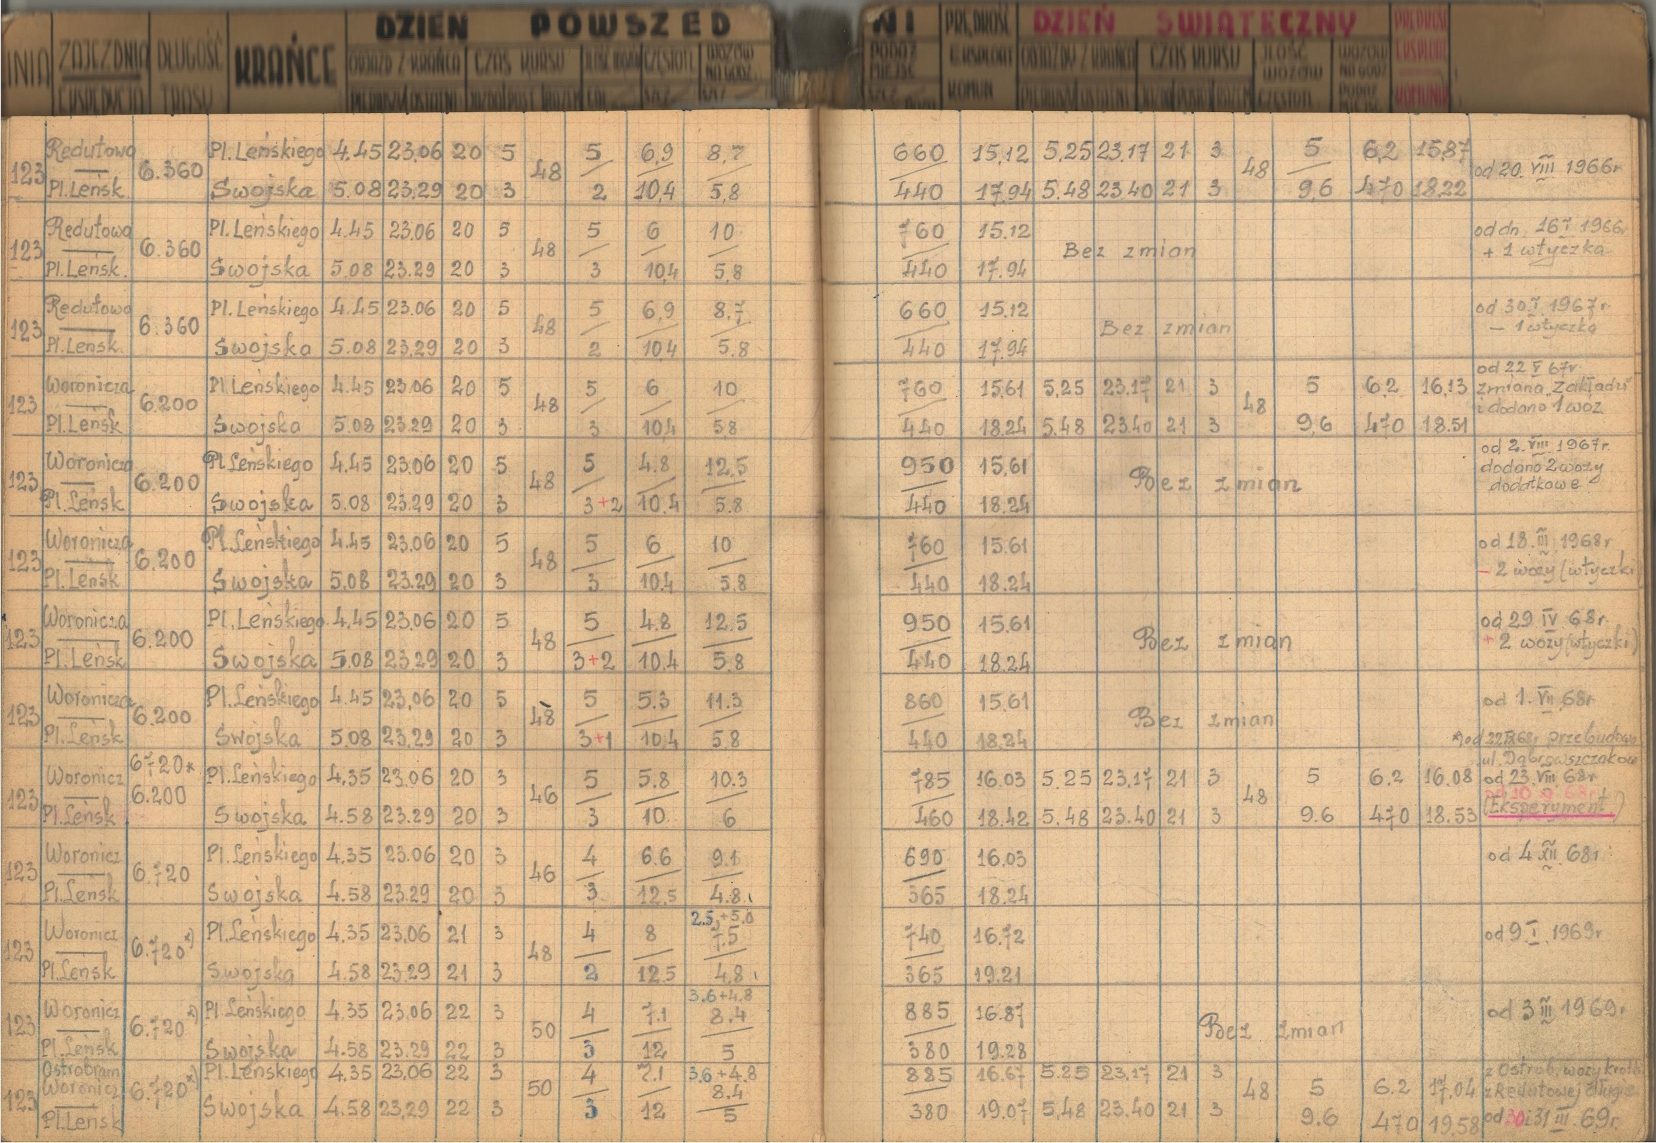 DZIEŃ POWSZEDNI DZIEŃ ŚWIĄTECZNY
ZAJEZDNIA DŁUGOŚĆ KRAŃCE ODJAZD Z KRAŃCA CZAS KURSU PRĘDKOŚĆ
EKSPEDYCJA TRASY
123 Redutowa 6.360 Pl. Leńskiego 4.45 23.06 20 5 48 5 6,9 8,7 660 15,12 5,25 23,17 21 3 48 5 6,2 15,87 od 20. VIII 1966r
Pl. Leńsk. Swojska 5.08 23.29 20 3 2 10,4 5,8 440 17.94 5.48 23.40 21 3 9,6 470 18.22
123 Redutowa 6.360 Pl. Leńskiego 4.45 23.06 20 5 48 5 6 10 760 15.12 Bez zmian od dn. 1966r
Pl. Leńsk. Swojska 5.08 23.29 20 3 3 10,4 5,8 440 17.94 + 1 wtyczka
123 Redutowa 6.360 Pl. Leńskiego 4.45 23.06 20 5 48 5 6,9 8,7 660 15.12 Bez zmian od 30.I. 1967r.
Pl. Leńsk. Swojska 5.08 23.29 20 3 2 10,4 5.8 440 17.94 – 1 wtyczka
123 Woronicza 6.200 Pl. Leńskiego 4.45 23.06 20 5 48 5 6 10 760 15,61 5,25 23.17 21 3 48 5 6.2 16,13 od 22 V 67r zmiana Zakładu
Pl. Leńsk Swojska 5.08 23.29 20 3 3 10,4 5,8 440 18.24 5.48 23.40 21 3 9,6 470 18.51 i dodano 1 woz
123 Woronicza 6.200 Pl. Leńskiego 4.45 23.06 20 5 48 5 4.8 12.5 950 15,61 Bez zmian od 2. VIII 1967r.
Pl. Leńsk Swojska 5.08 23.29 20 3 3+2 10.4 5.8 440 18.24 dodano 2 wozy dodatkowe
123 Woronicza 6.200 Pl. Leńskiego 4.45 23.06 20 5 48 5 6 10 760 15.61 od 18. III 1968r
Pl. Leńsk Swojska 5.08 23.29 20 3 3 10.4 5.8 440 18.24 – 2 wozy (wtyczki
123 Woronicza 6.200 Pl. Leńskiego 4.45 23.06 20 5 48 5 4.8 12.5 950 15.61 Bez zmian od 29 IV 68r.
Pl. Leńsk Swojska 5.08 23.29 20 3 3+2 10.4 5.8 440 18.24 + 2 wozy (wtyczki)
123 Woronicza 6.200 Pl. Leńskiego 4.45 23,06 20 5 48 5 5.3 11.3 860 15.61 Bez zmian od 1. VII 68r
Pl. Leńsk Swojska 5.08 23.29 20 3 3+1 10.4 5.8 440 18.24
przebudowa
ul. Dąbrowszczaków
123 Woronicz 6720* Pl. Leńskiego 4.35 23.06 20 3 46 5 5.8 10.3 785 16.03 5.25 23.17 21 3 48 5 6.2 16.08 od 23. VIII 68r
6.200
Pl. Leńsk Swojska 4.58 23.29 20 3 3 10 6 460 18.42 5.48 23.40 21 3 9.6 470 18.53 (Eksperyment)
123 Woronicz 6.720 Pl. Leńskiego 4.35 23.06 20 3 46 4 6.6 9.1 690 16.03 od 4 XII 68r.
Pl. Leńsk Swojska 4.58 23.29 20 3 3 12.5 4.8 365 18.24
2.5+5.0
123 Woronicz 6.720*) Pl. Leńskiego 4.35 23.06 21 3 48 4 8 7.5 740 16.72 od 9 I. 1969r
Pl. Leńsk Swojska 4.58 23.29 21 3 2 12.5 4.8 365 19.21
3.6+4.8
123 Woronicz 6.720*) Pl Leńskiego 4.35 23.06 22 3 50 4 7.1 8.4 885 16.87 Bez zmian od 3 III 1969r
Pl. Leńsk Swojska 4.58 23.29 22 3 3 12 5 380 19.28
123 Ostrobram 6.720*) Pl. Leńskiego 4.35 23,06 22 3 50 4 7.1 3.6+4.8 885 16.67 5.25 23,17 21 3 48 5 6.2 17,04 z Ostrob. wozy krótk
Woronicz 8.4 z Redutowej długie
Pl. Leńsk Swojska 4.58 23,29 22 3 3 12 5 380 19.07 5,48 23.40 21 3 9.6 470 19,58 od 30 i 31 III. 69r.